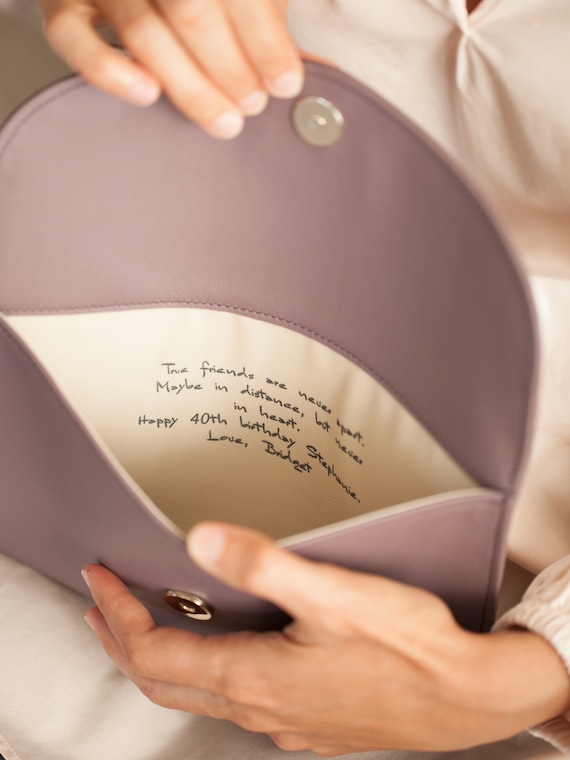 True friends are never apart.
Maybe in distance, but never
in heart.
Happy 40th birthday Stephanie.
Love, Bridget